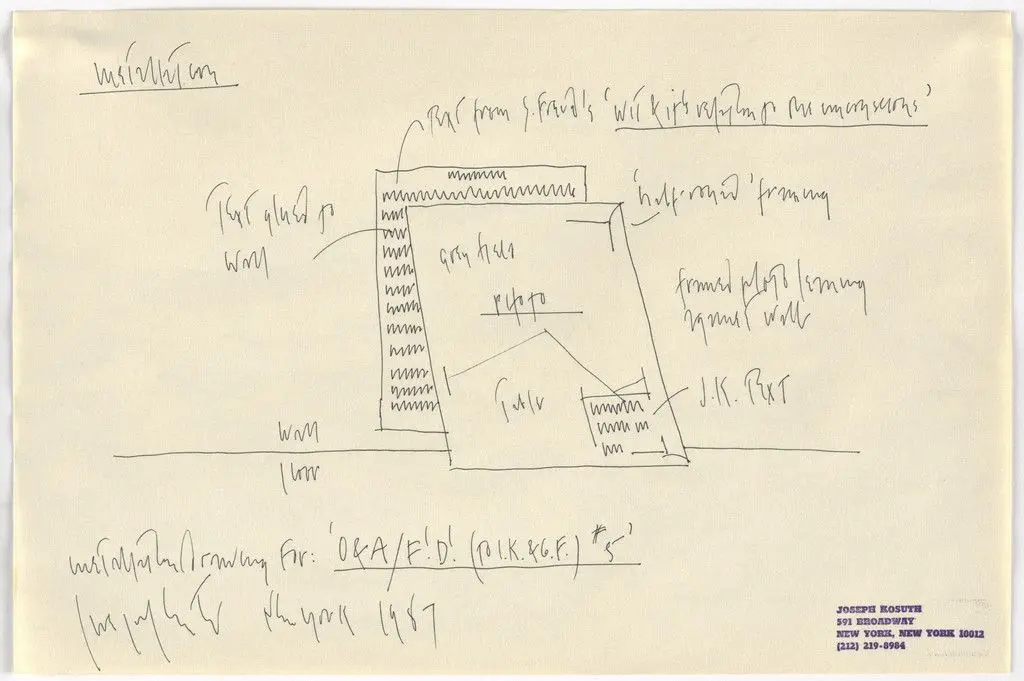 installation
text from S. Freud's 'Wit & its relation to the unconscious'
Text glued to
wall
'half-round' framing
grey field
photo
framed photo leaning
against wall
Table
J.K. Text
wall
floor
installation drawing for: 'O & A/F!D! (to I.K. & G.F.) #5'
New York 1987
JOSEPH KOSUTH
591 BROADWAY
NEW YORK, NEW YORK 10012
(212) 219-8984